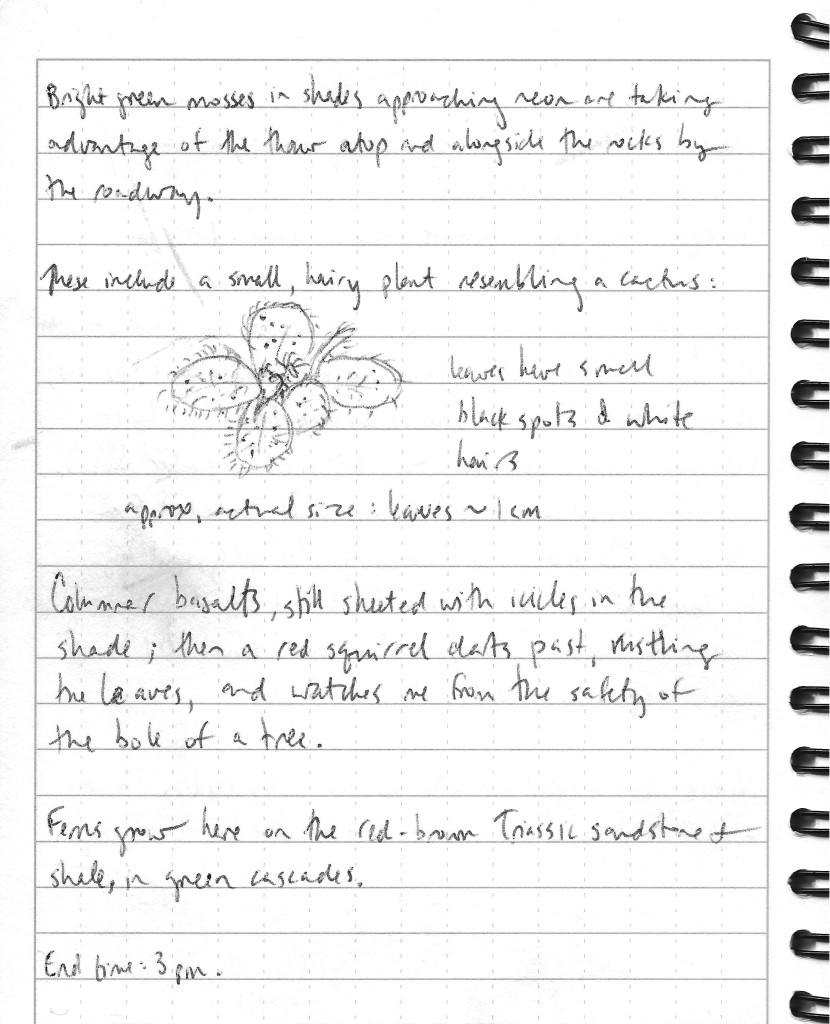 Bright green mosses in shades approaching neon are taking
advantage of the thaw atop and alongside the rocks by
the roadway.
These include a small, hairy plant resembling a cactus:
leaves have small
black spots & white
hairs
approx. actual size: leaves ~ 1 cm
Columnar basalts, still sheeted with icicles in the
shade; then a red squirrel darts past, rustling
the leaves, and watches me from the safety of
the bole of a tree.
Ferns grow here on the red-brown Triassic sandstone +
shale, in green cascades.
End time: 3 pm.